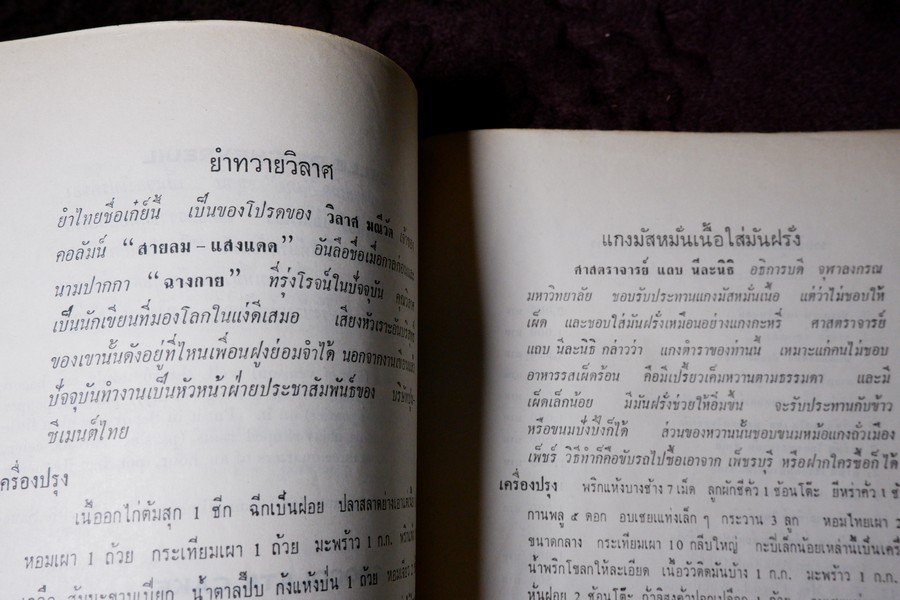 ยำทวายวิลาศ
ยำไทยชื่อเก๋ย์นี้ เป็นของโปรดของ วิลาศ มณีวัต
คอลัมน์ “สายลม – แสงแดด” อันลือชื่อเมื่อกาลก่อนและ
นามปากกา “ฉางกาย” ที่รุ่งโรจน์ในปัจจุบัน คุณวิลาศ
เป็นนักเขียนที่มองโลกในแง่ดีเสมอ เสียงหัวเราะอันบริสุทธิ์
ของเขานั้นดังอยู่ที่ไหนเพื่อนฝูงย่อมจำได้ นอกจากงานเขียนแล้ว
ปัจจุบันทำงานเป็นหัวหน้าฝ่ายประชาสัมพันธ์ของ
ซีเมนต์ไทย
เครื่องปรุง
เนื้ออกไก่ต้มสุก 1 ซีก ฉีกเป็นฝอย ปลาสลาดย่างเอาแต่เนื้อ
หอมเผา 1 ถ้วย กระเทียมเผา 1 ถ้วย มะพร้าว 1 ก.ก.
ส้มมะขามเปียก น้ำตาลปีบ กุ้งแห้งป่น 1 ถ้วย
แกงมัสหมั่นเนื้อใส่มันฝรั่ง
ศาสตราจารย์ แถบ นีละนิธิ อธิการบดี จุฬาลงกรณ
มหาวิทยาลัย ชอบรับประทานแกงมัสหมั่นเนื้อ แต่ว่าไม่ชอบให้
เผ็ด และชอบใส่มันฝรั่งเหมือนอย่างแกงกะหรี่ ศาสตราจารย์
แถบ นีละนิธิ กล่าวว่า แกงตำราของท่านนี้ เหมาะแก่คนไม่ชอบ
อาหารรสเผ็ดร้อน คือมีเปรี้ยวเค็มหวานตามธรรมดา และมี
เผ็ดเล็กน้อย มีมันฝรั่งช่วยให้อิ่มขึ้น จะรับประทานกับข้าว
หรือขนมปังปิ้งก็ได้ ส่วนของหวานนั้นชอบขนมหม้อแกงถั่วเมือง
เพ็ชร์ วิธีทำก็คือขับรถไปซื้อเอาจาก เพ็ชรบุรี หรือฝากใครซื้อก็ได้
เครื่องปรุง พริกแห้งบางช้าง 7 เม็ด ลูกผักชีคั่ว 1 ช้อนโต๊ะ ยี่หร่าคั่ว 1
กานพลู ๕ ดอก อบเชยแท่งเล็ก ๆ กระวาน 3 ลูก หอมไทยเผา 2
ขนาดกลาง กระเทียมเผา 10 กลีบใหญ่ กะปิเล็กน้อยเหล่านี้เป็นเครื่อง
น้ำพริกโขลกให้ละเอียด เนื้อวัวติดมันบ้าง 1 ก.ก. มะพร้าว 1 ก.ก.
หั่นฝอย 2 ช้อนโต๊ะ ถั่วลิสงคั่วปอกเปลือก 1 ถ้วย